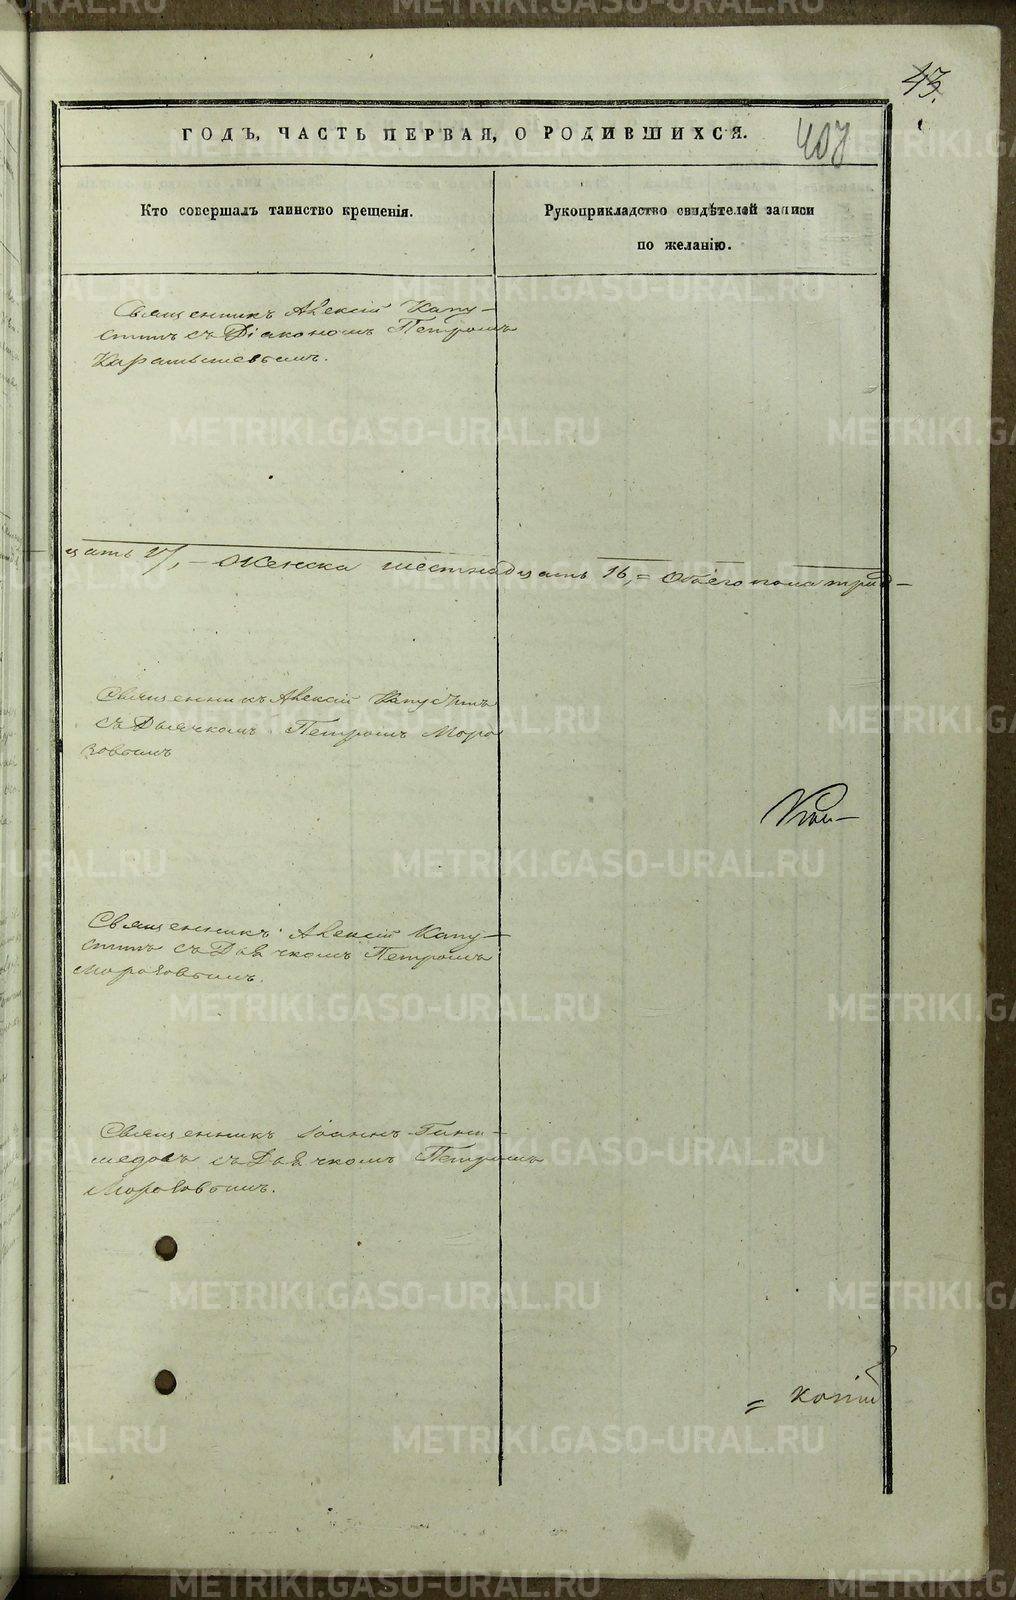 43.
ГОДЪ, ЧАСТЬ ПЕРВАЯ, О РОДИВШИХСЯ.
407
Кто совершалъ таинство крещенія.
Рукоприкладство свидѣтелей записи
по желанію.
Священникъ Алексій Капу-
стинъ съ Діакономъ Петромъ
Карамышевымъ.
цать 17, - Женска шестнадцать 16, = Обоего пола трид-
Священникъ Алексій Капустинъ
съ Дьячкомъ Петромъ Моро
зовымъ
Священникъ Алексій Капу-
стинъ съ Дьячкомъ Петромъ
Морозовымъ.
Священникъ Іоаннъ
съ Дьячкомъ Петромъ
Морозовымъ.
= копіи
METRIKI.GASO-URAL.RU